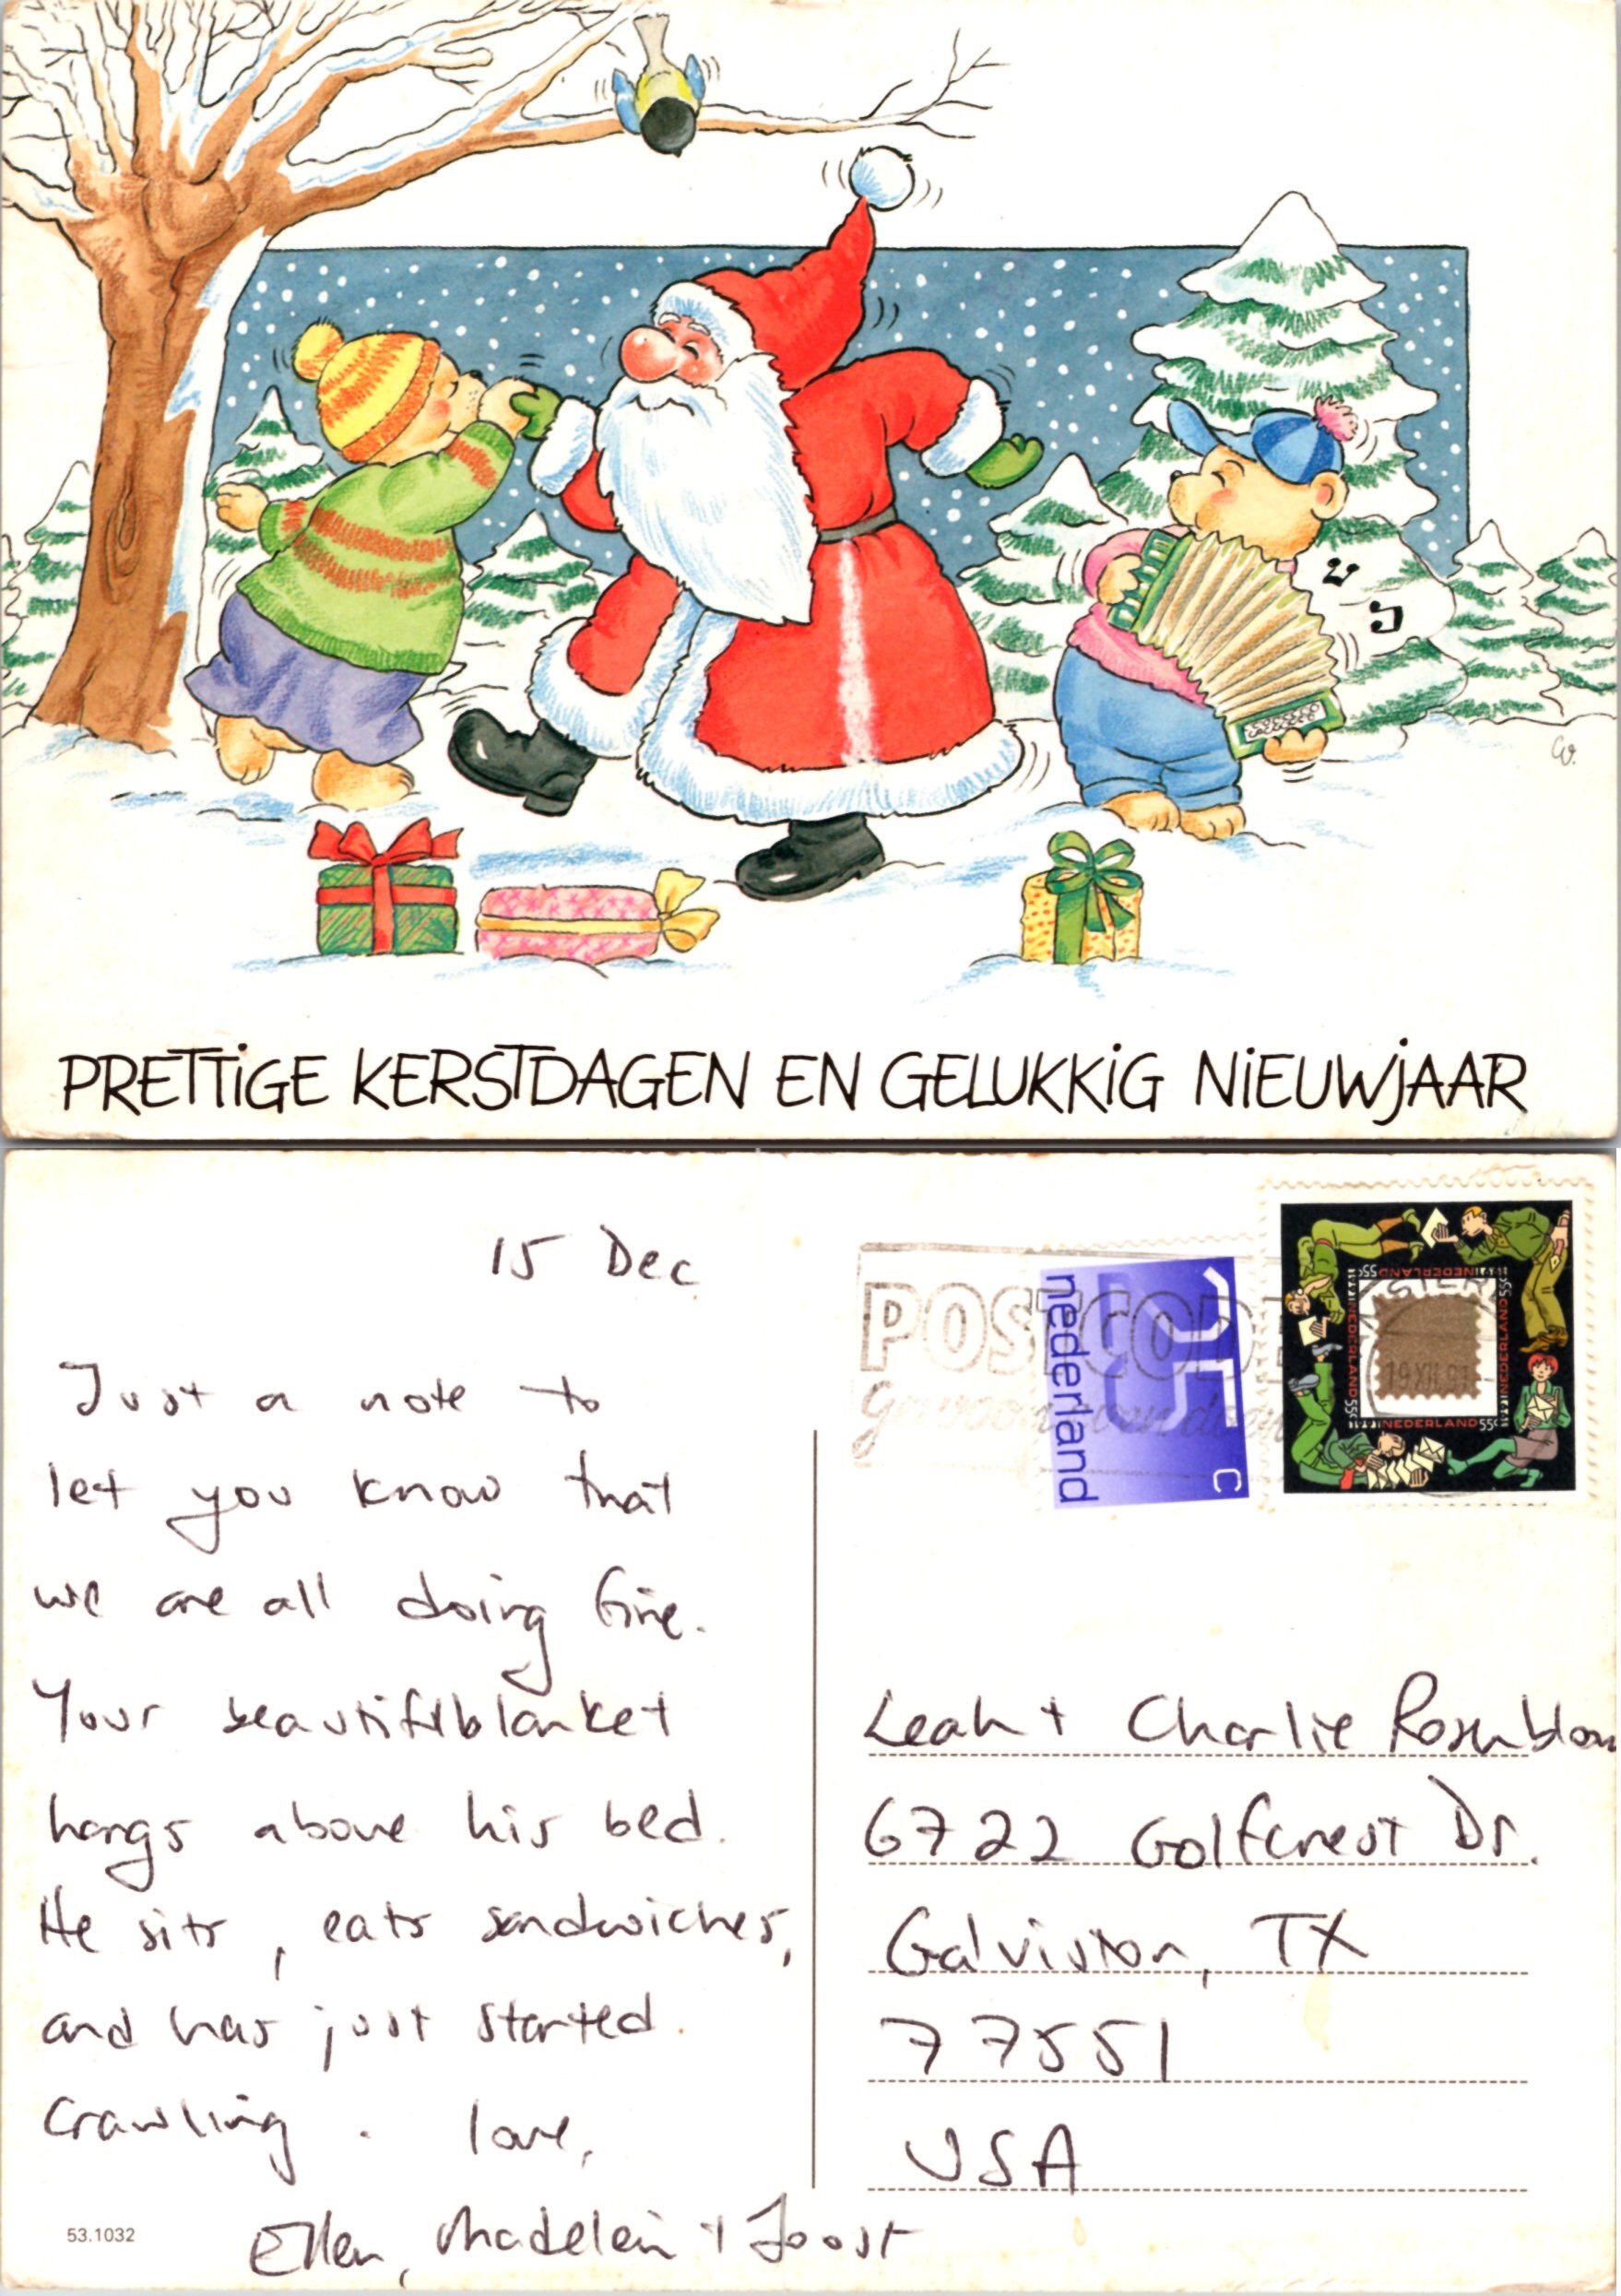 PRETTIGE KERSTDAGEN EN GELUKKIG NIEUWJAAR
15 Dec
Just a note to
let you know that
we are all doing fine.
Your beautifulblanket
hangs above his bed.
He sits, eats sandwiches,
and has just started
crawling. love,
Ellen, Madelein + Joost
53.1032
POSTCODE
gewoon even doen
nederland
25
c
NEDERLAND 55c
NEDERLAND 55c
NEDERLAND 55c
NEDERLAND 55c
19 XII 91
Leah + Charlie Rosenblom
6722 Golfcrest Dr.
Galviston, TX
77551
USA